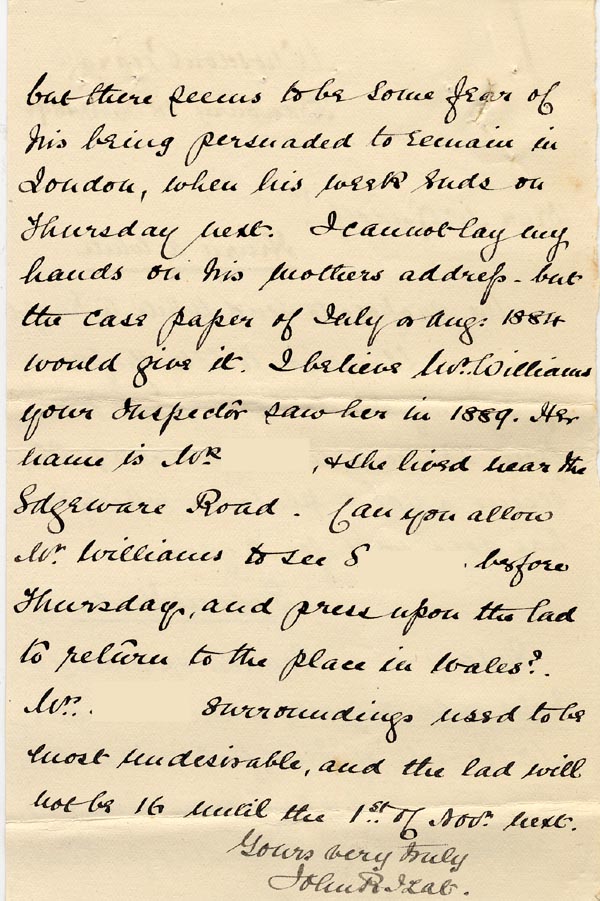 but there seems to be some fear of
his being persuaded to remain in
London, when his week ends on
Thursday next. I cannot lay my
hands on his mothers address - but
the case paper of July or Aug: 1884
would give it. I believe Mr. Williams
your Inspector saw her in 1889. Her
name is Mrs , & she lived near the
Edgeware Road. Can you allow
Mr. Williams to see S . before
Thursday, and press upon the lad
to return to the place in Wales?.
Mrs. surroundings used to be
most undesirable, and the lad will
not be 16 until the 1st of Novr. next.
Yours very truly
John R.